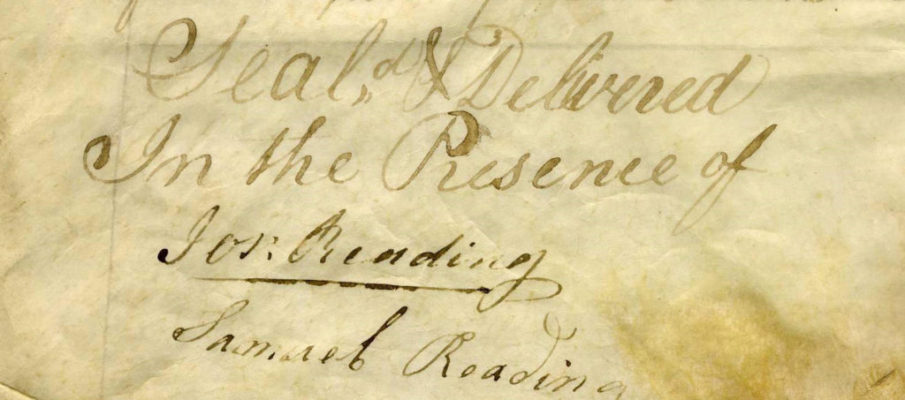 Seal,d & Delivered
In the Presence of
Jos: Reading
Samuel Reading